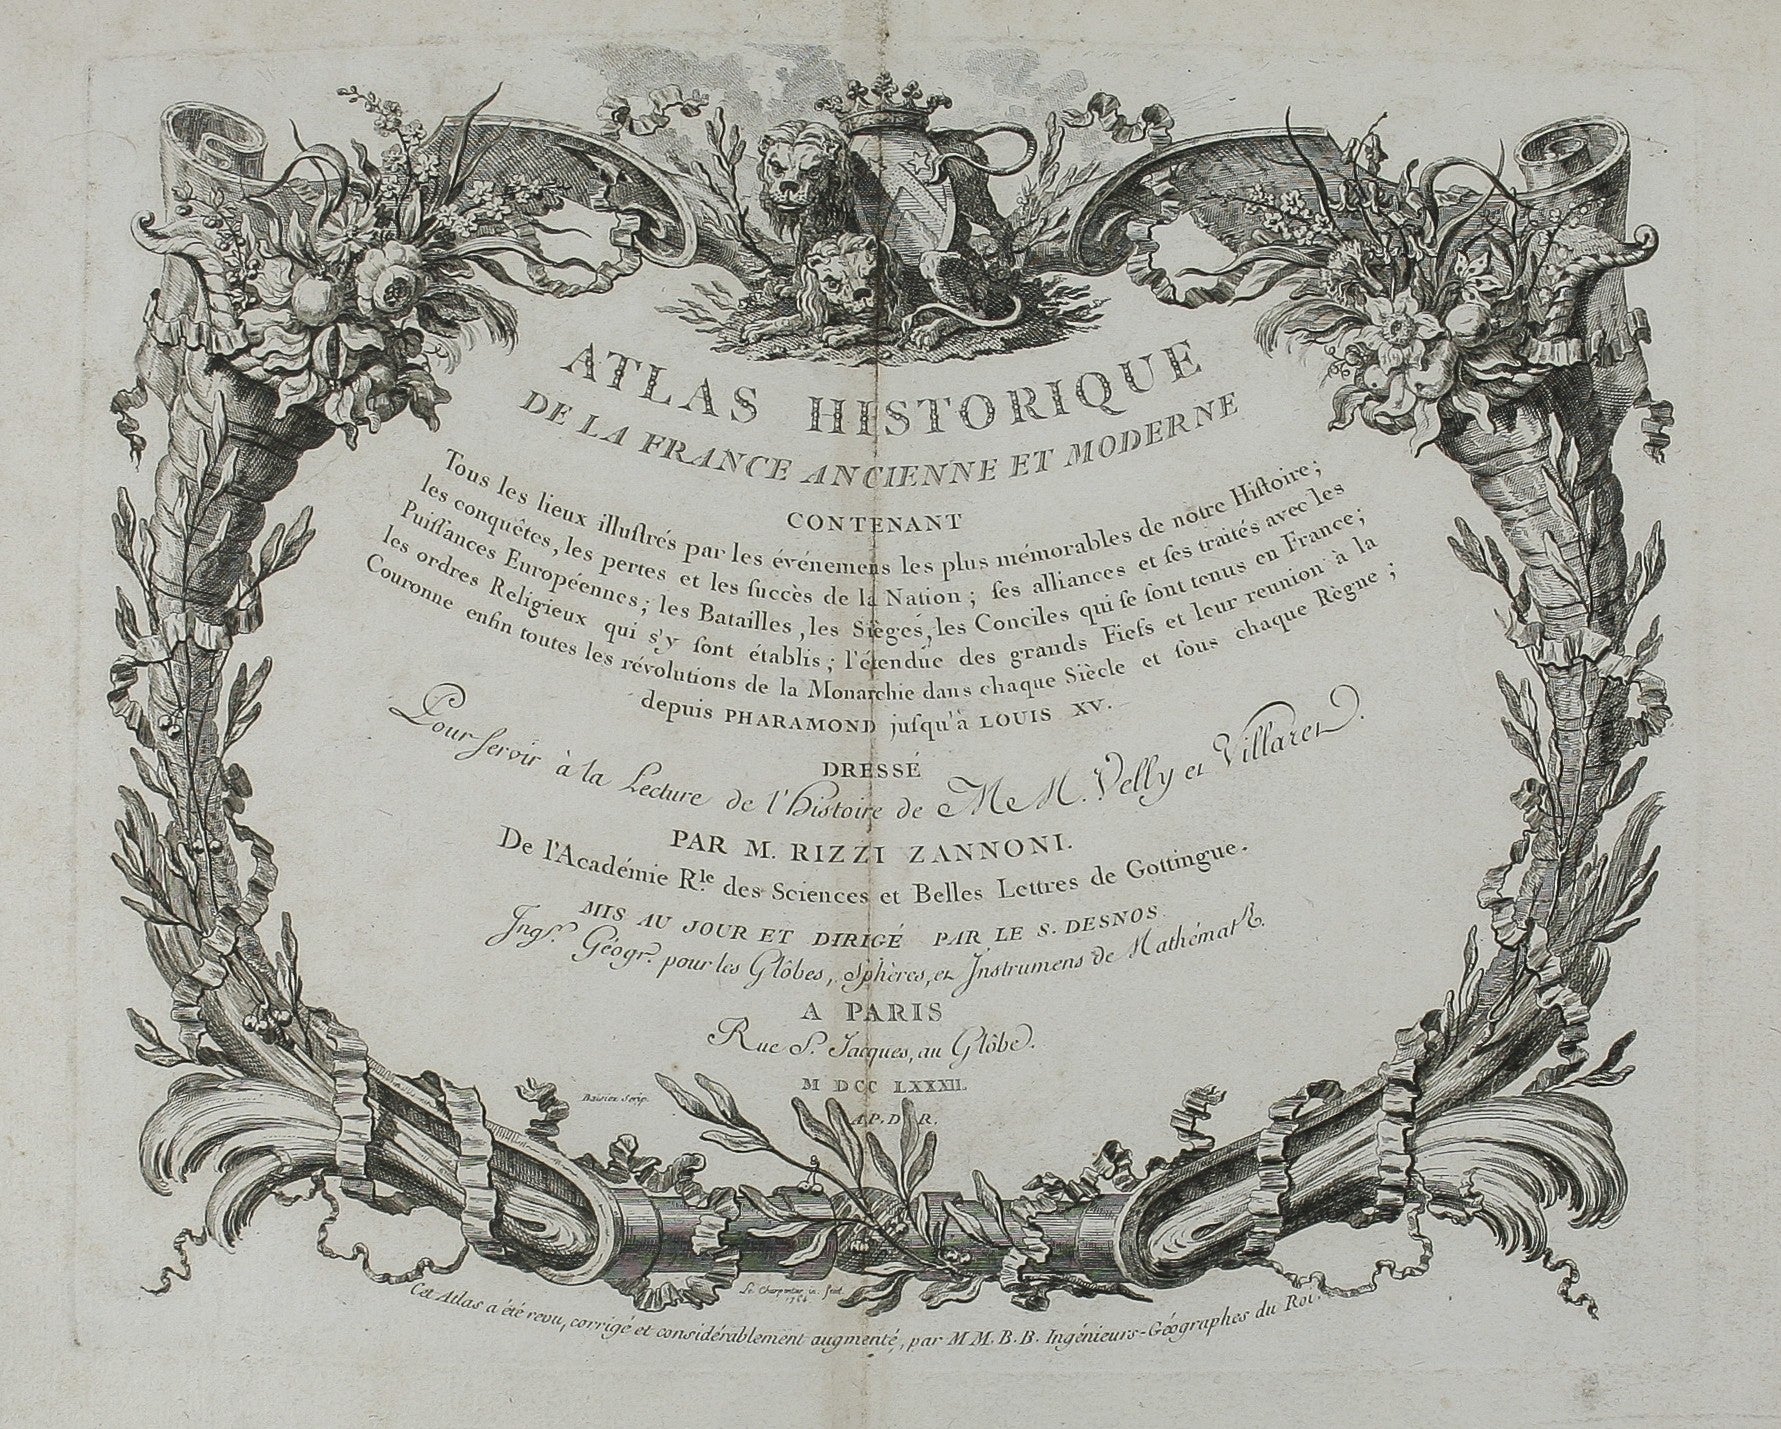 ATLAS HISTORIQUE
DE LA FRANCE ANCIENNE ET MODERNE
CONTENANT
Tous les lieux illuſtrés par les événemens les plus mémorables de notre Hiſtoire ;
les conquêtes, les pertes et les ſuccès de la Nation ; ſes alliances et ſes traités avec les
Puiſſances Européennes ; les Batailles, les Siéges, les Conciles qui ſe ſont tenus en France ;
les ordres Religieux qui s'y ſont établis ; l'étendüe des grands Fiefs et leur reunion à la
Couronne enfin toutes les révolutions de la Monarchie dans chaque Siècle et ſous chaque Règne ;
depuis PHARAMOND juſqu'à LOUIS XV.
DRESSÉ
Pour ſervir à la Lecture de l'Histoire de M M. Velly et Villaret.
PAR M. RIZZI ZANNONI.
De l'Académie R.le des Sciences et Belles Lettres de Gottingue.
MIS AU JOUR ET DIRIGÉ PAR LE S. DESNOS
Ingr. Géogr. pour les Glôbes, Sphères, et Instrumens de Mathémat
A PARIS
Rue S. Jacques, au Glôbe.
M DCC LXXXII.
A.P.D.R.
Scrip.
Le Charpentier in. fecit
Cet Atlas a été revu, corrigé et considérablement augmenté, par M M. B. B. Ingénieurs-Géographes du Roi.